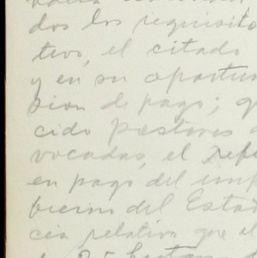 dos los requisito
tivo, el citado
y en su oportun
sion de pago; q
cido pastores
vocadas, el refe
en pago del imp
bierno del Estad
cia relativa que el